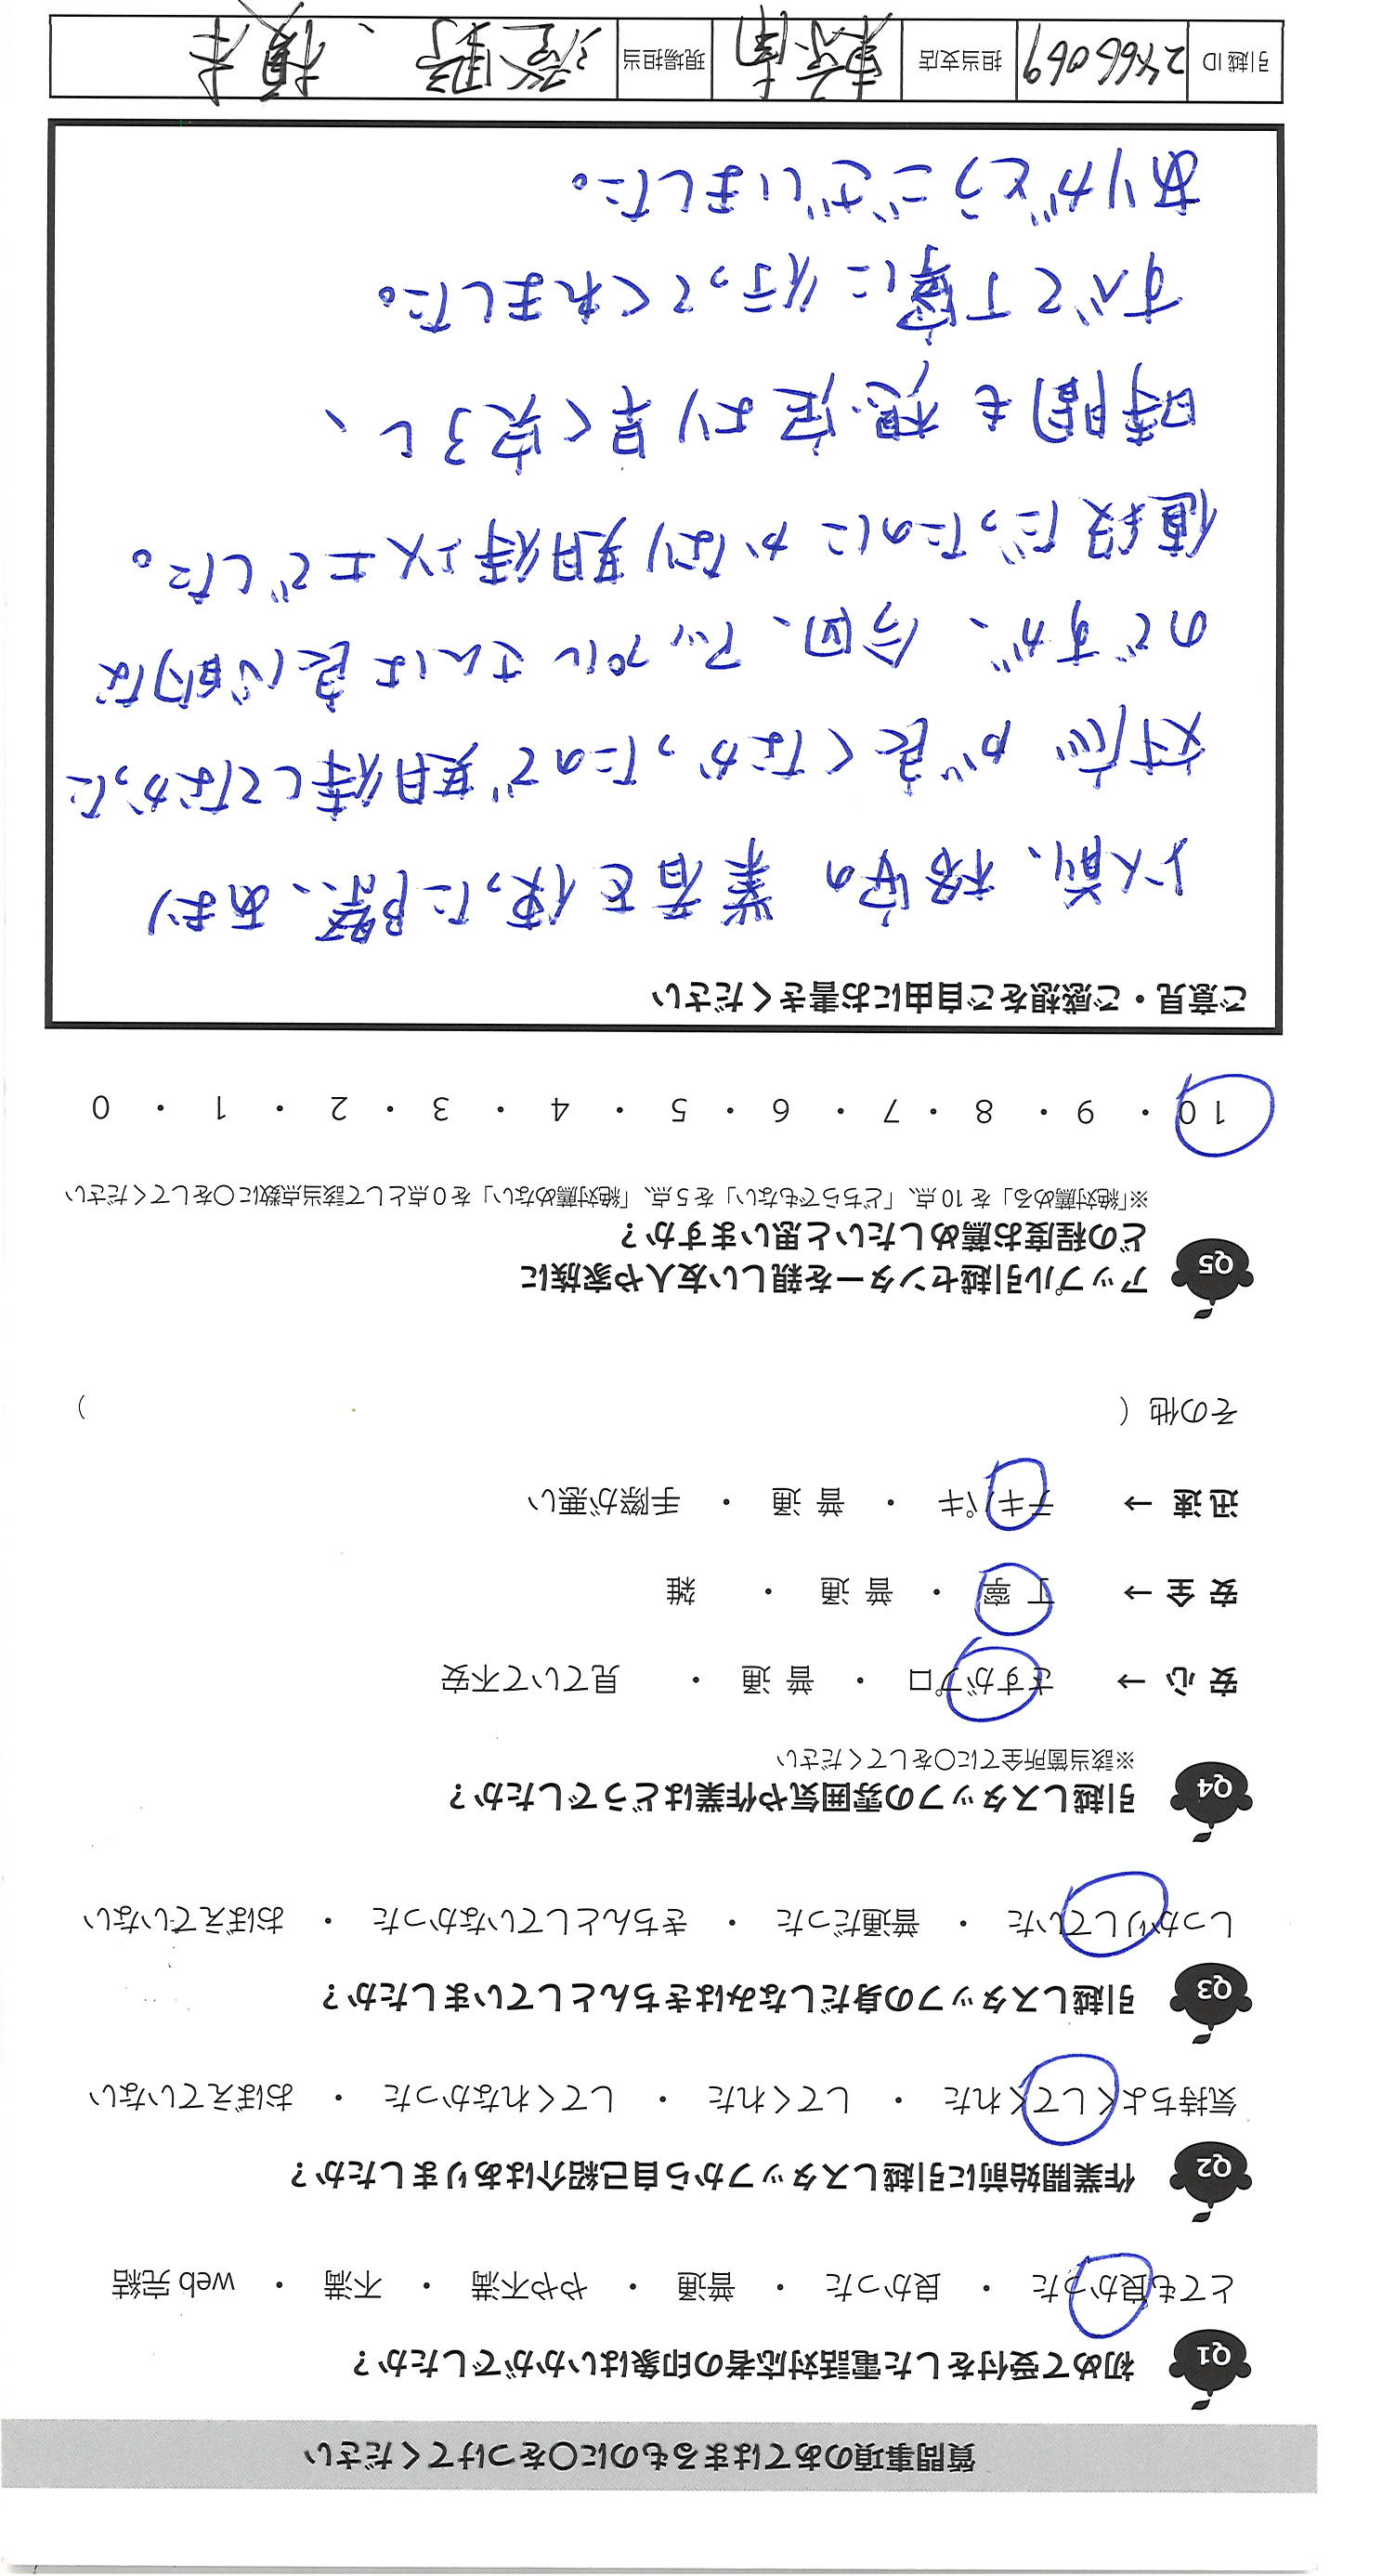 質問事項のあてはまるものに○をつけてください
Q1 初めて受付をした電話対応者の印象はいかがでしたか?
とても良かった ・ 良かった ・ 普通 ・ やや不満 ・ 不満 ・ web 完結
Q2 作業開始前に引越しスタッフから自己紹介はありましたか?
気持ちよくしてくれた ・ してくれた ・ してくれなかった ・ おぼえていない
Q3 引越しスタッフの身だしなみはきちんとしていましたか?
しっかりしていた ・ 普通だった ・ きちんとしていなかった ・ おぼえていない
Q4 引越しスタッフの雰囲気や作業はどうでしたか?
※該当箇所全てに○をしてください
安 心 → さすがプロ ・ 普 通 ・ 見ていて不安
安 全 → 丁 寧 ・ 普 通 ・ 雑
迅 速 → テキパキ ・ 普 通 ・ 手際が悪い
その他 ( )
Q5 アップル引越センターを親しい友人や家族に
どの程度お薦めしたいと思いますか?
※「絶対薦める」を 10 点、「どちらでもない」を 5 点、「絶対薦めない」を 0 点として該当点数に○をしてください
10 ・ 9 ・ 8 ・ 7 ・ 6 ・ 5 ・ 4 ・ 3 ・ 2 ・ 1 ・ 0
ご意見・ご感想をご自由にお書きください
以前、格安の業者を使った際、あまり
対応が良くなかったので期待してなかった
のですが、今回、アップルさんは良心的な
値段だったのにかなり期待以上でした。
時間も想定より早く完了し、
すべて丁寧に行ってくれました。
ありがとうございました。
引越 ID 2466069 担当支店 現場担当